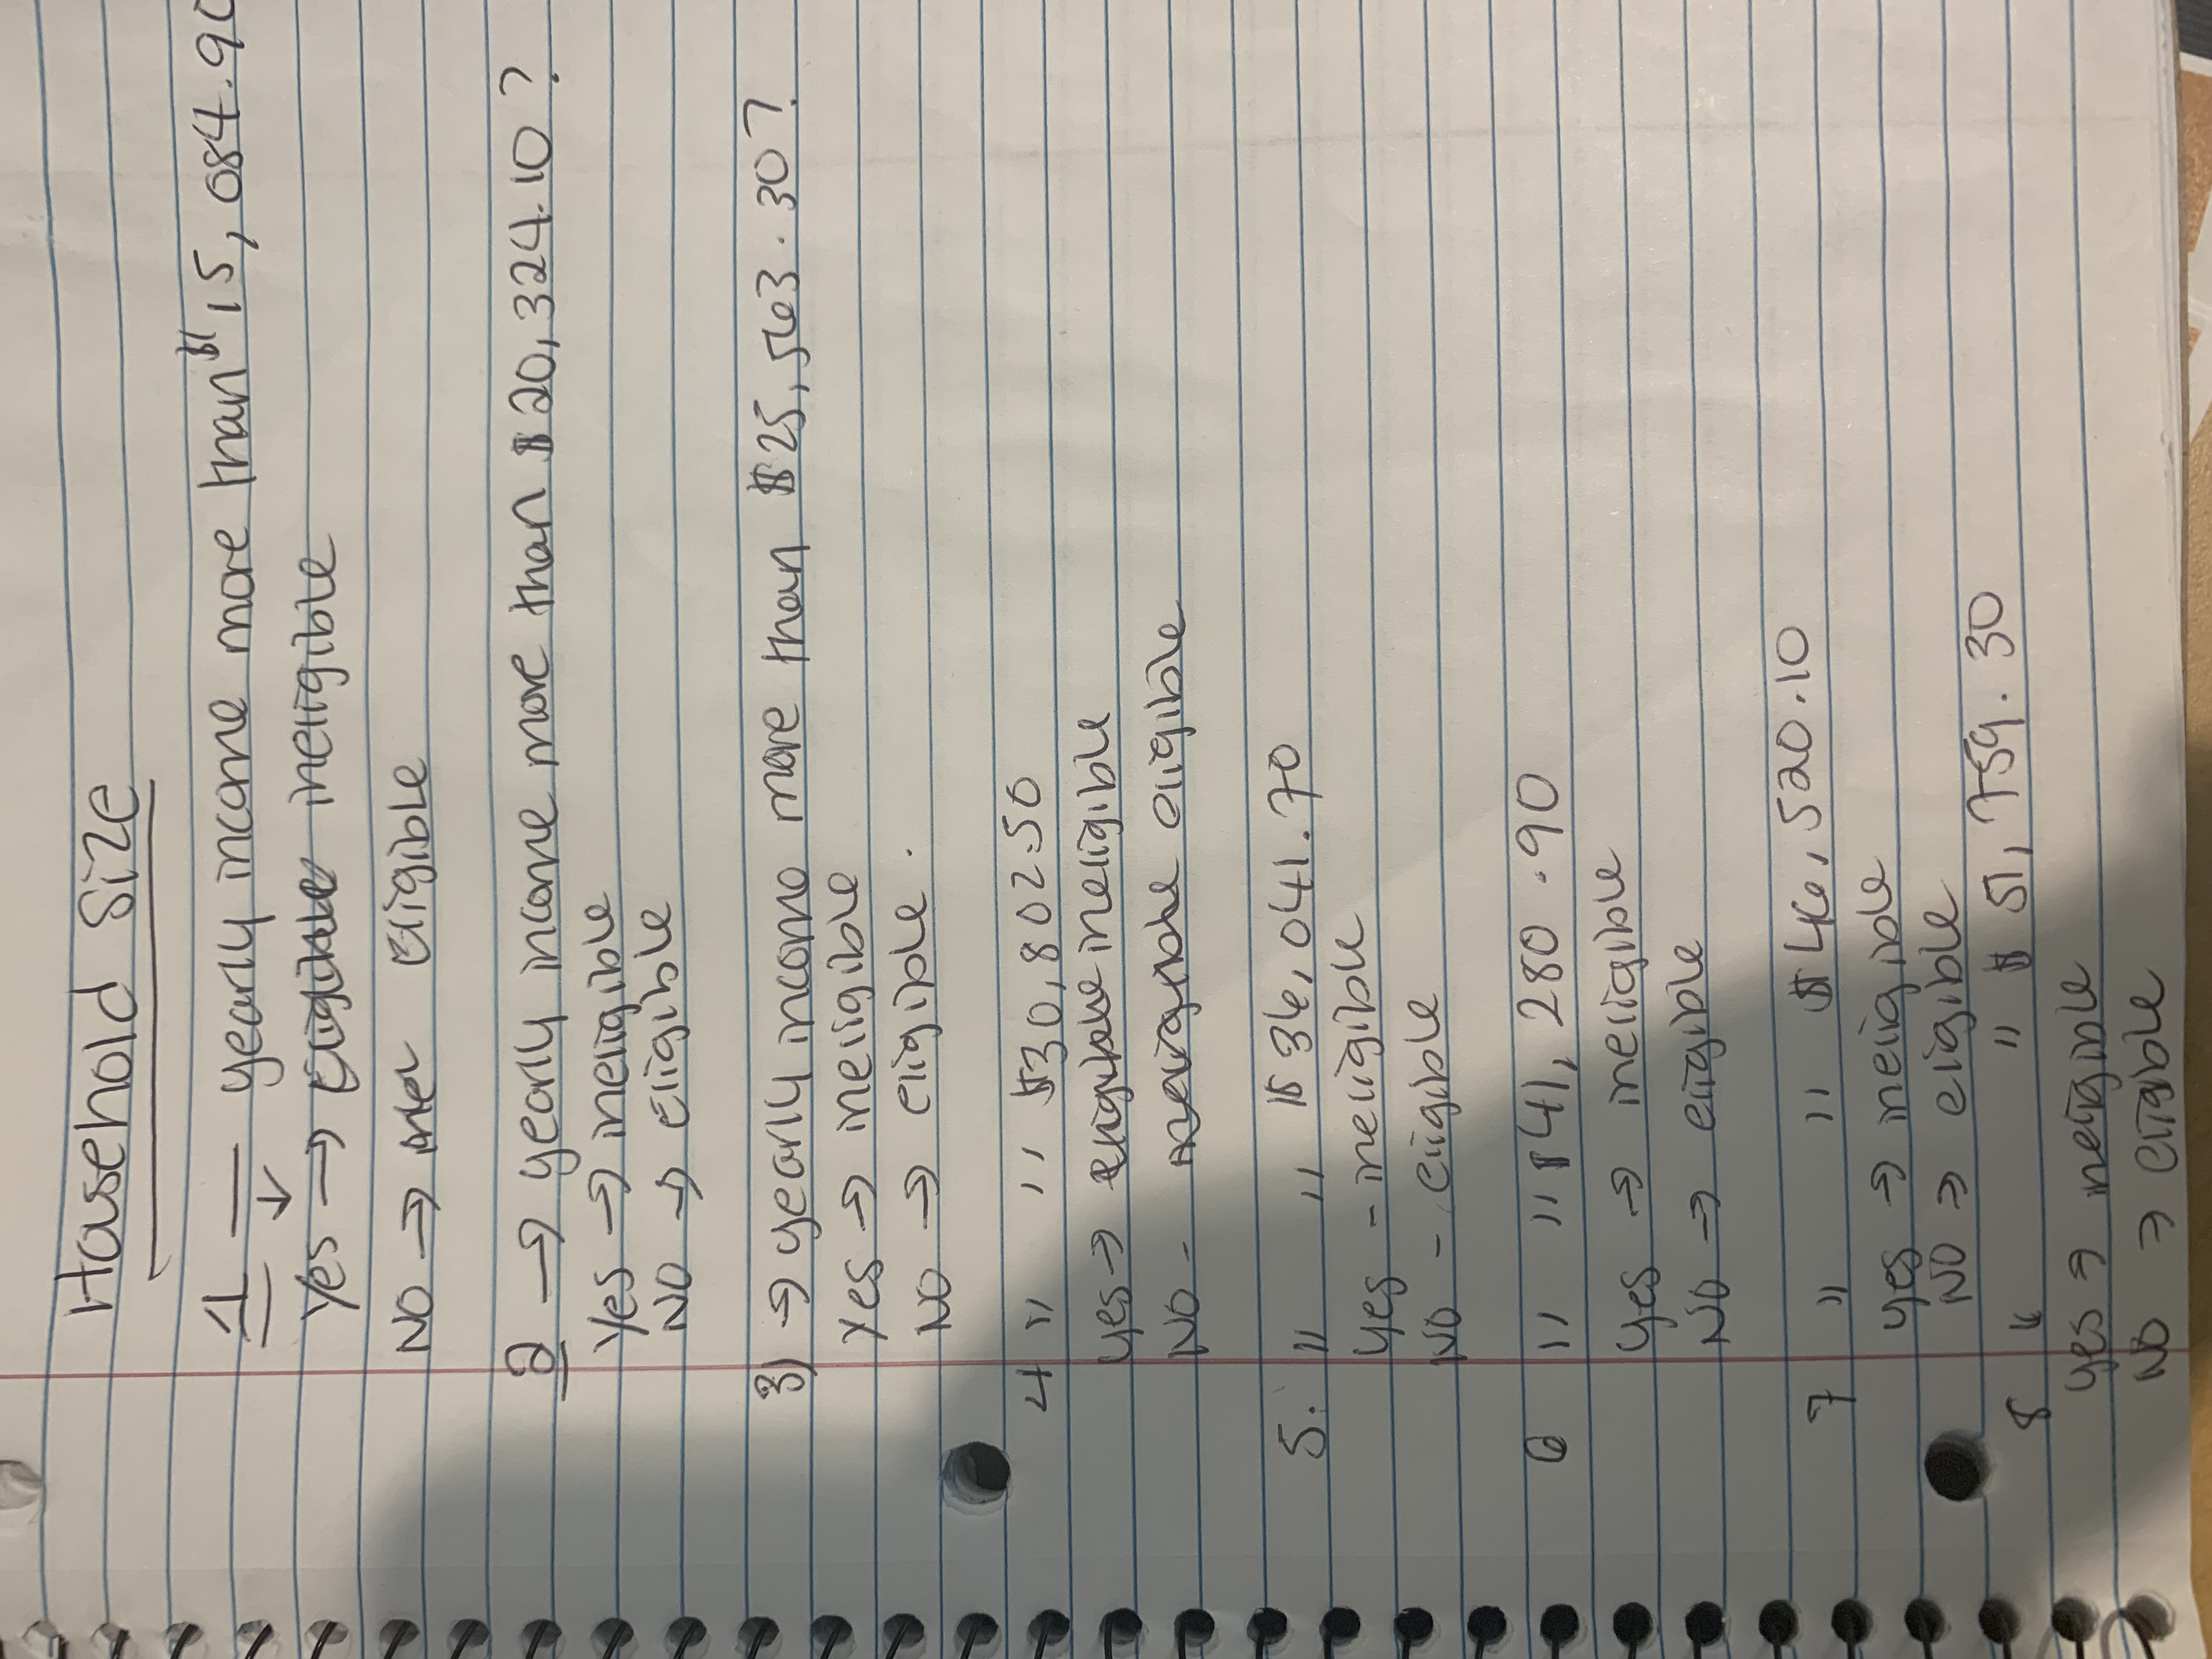 Household Size
1 — yearly income more than $15,084.90
↓
Yes → ineligible
NO → Eligible
2 → yearly income more than $20,324.10?
Yes → ineligible
NO → Eligible
3) → yearly income more than $25,563.30?
Yes → ineligible
NO → eligible.
4 " " $30,802.50
yes → ineligible
NO - eligible
5. " " $36,041.70
yes - ineligible
NO - eligible
6 " " $41,280.90
yes → ineligible
NO → eligible
7 " " $46,520.10
yes → ineligible
NO → eligible
8 " " $51,759.30
yes → ineligible
NO → eligible